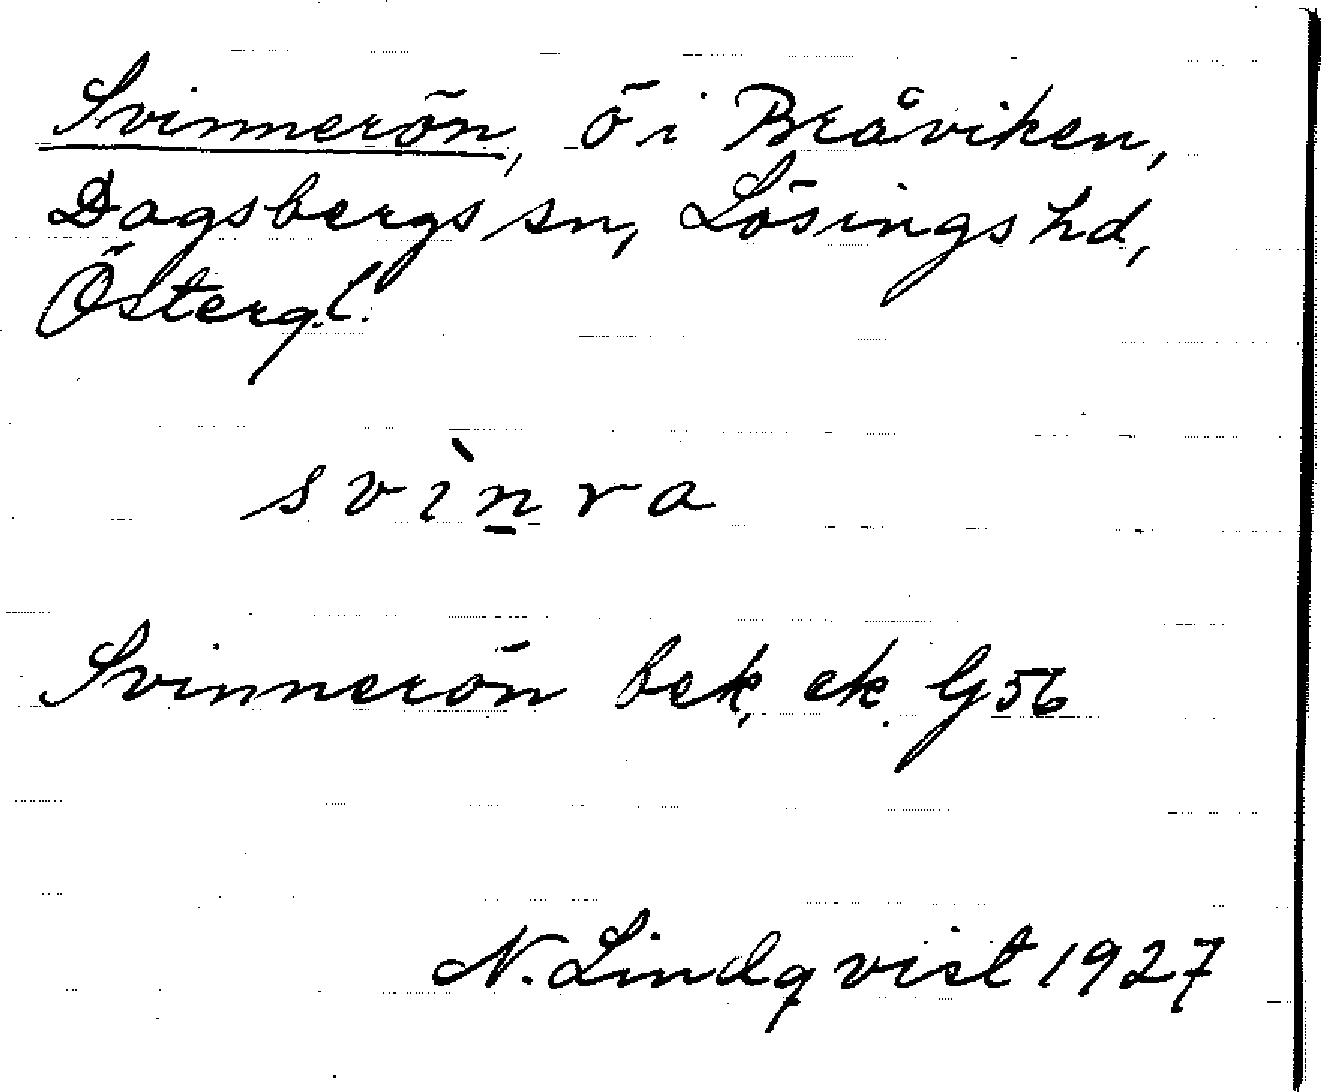 Svinnerön, ö i Bråviken,
Dagsbergs sn, Lösings hd,
Österg.l.
svìn̲ra
Svinnerön bek. ek. G 56
N. Lindqvist 1927